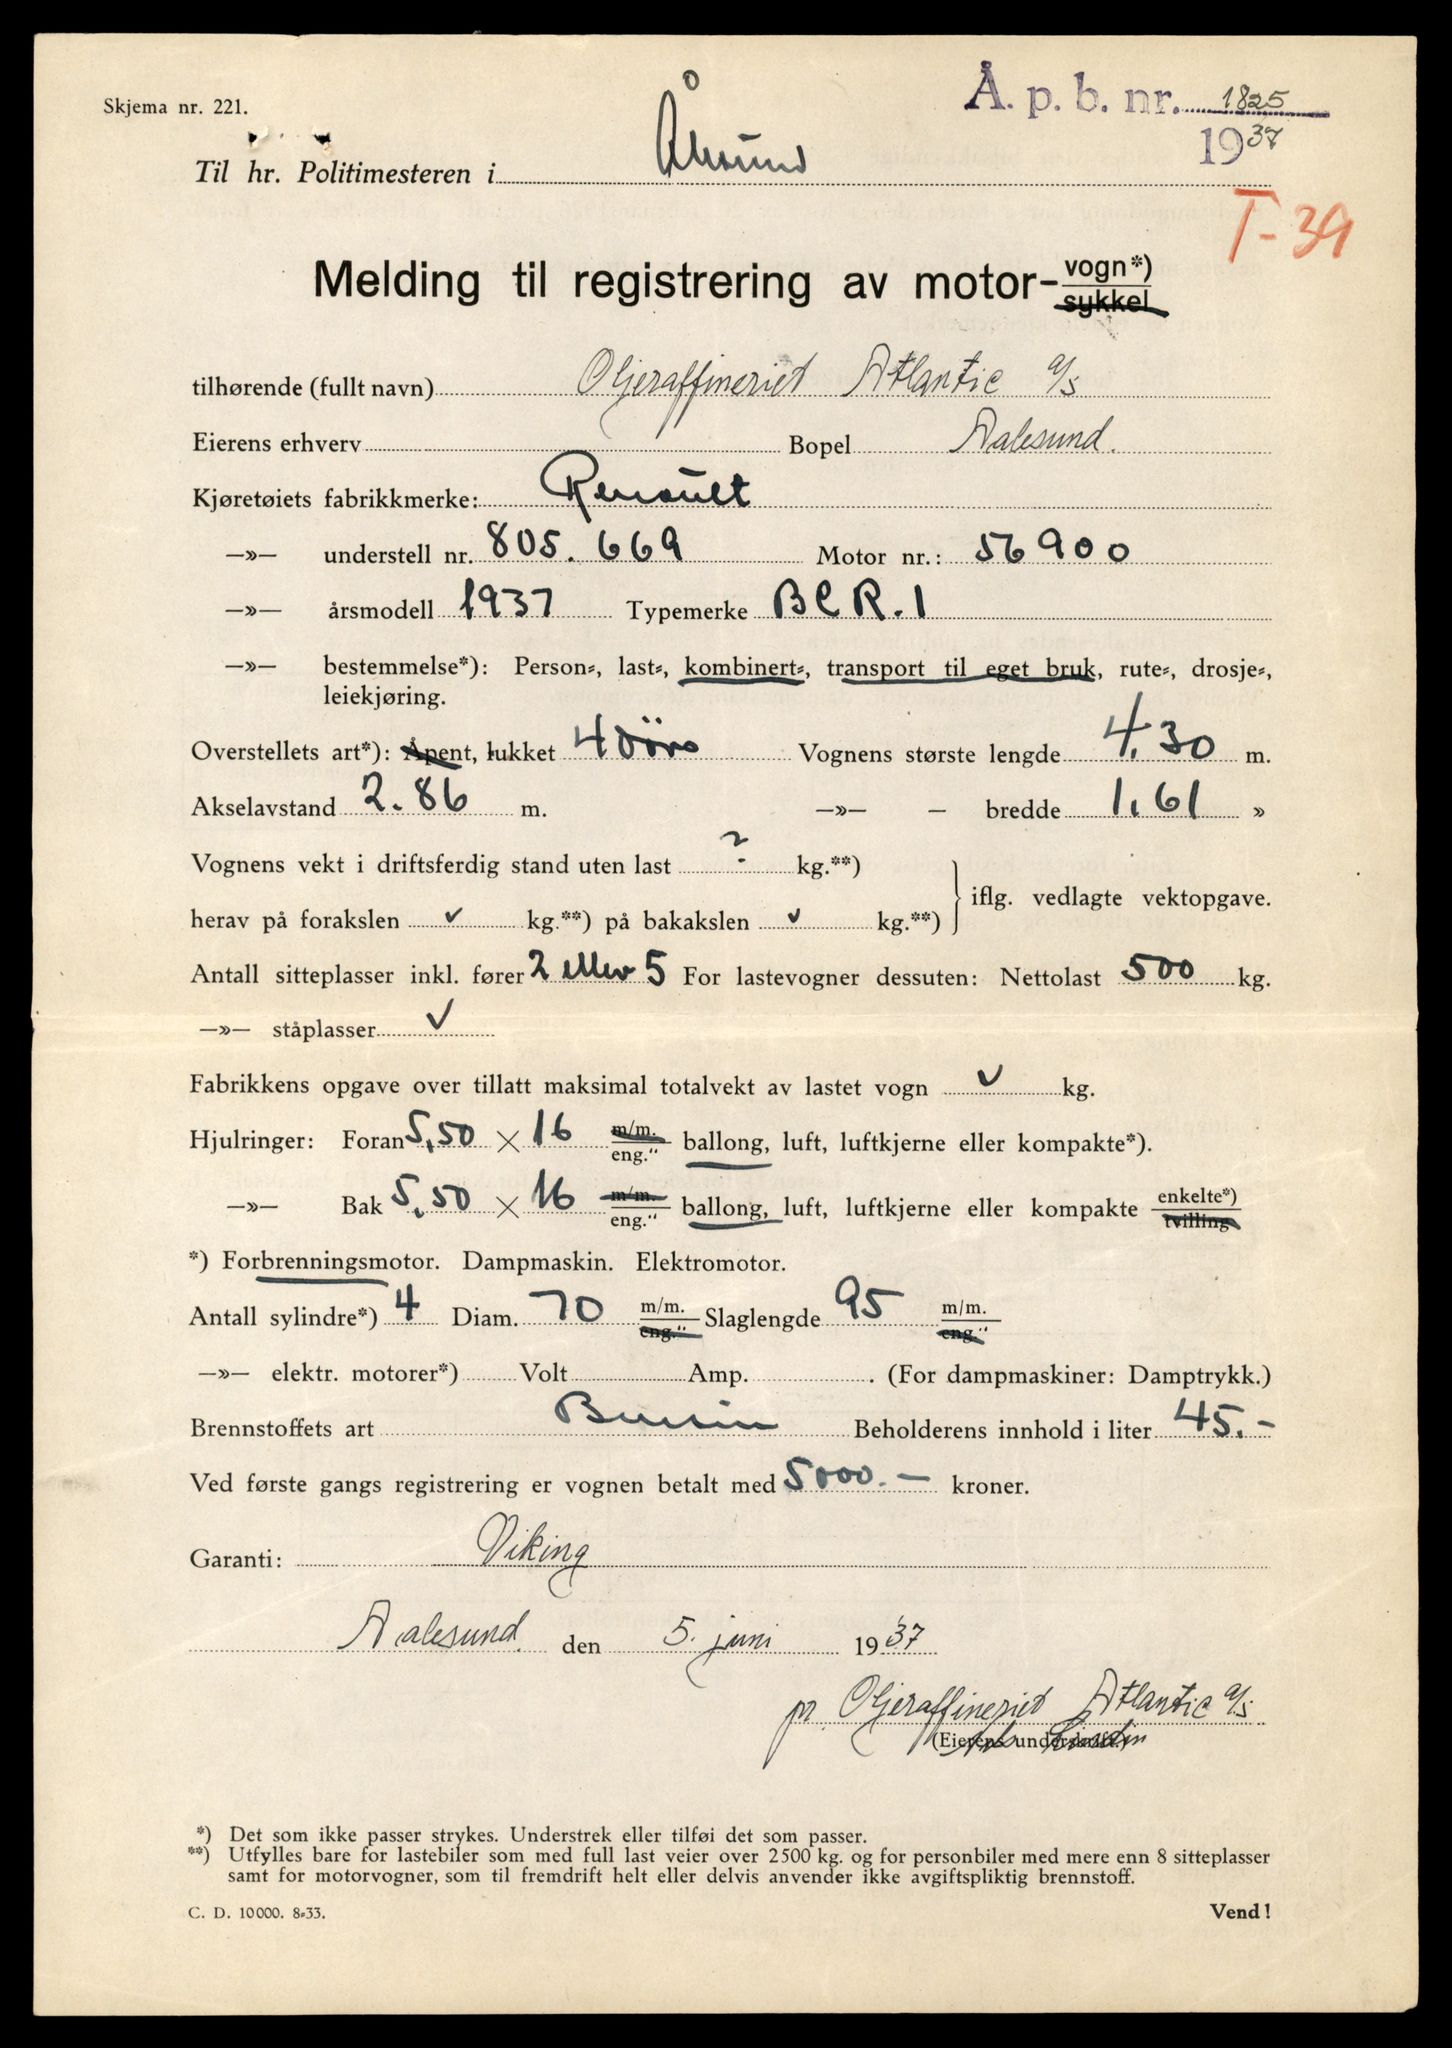 Skjema nr. 221.
Å. p. b. nr. 1825
1937
Til hr. Politimesteren i Ålesund
T-39
Melding til registrering av motor-vogn*)
sykkel
tilhørende (fullt navn) Oljeraffineriet Atlantic a/s
Eierens erhverv Bopel Aalesund.
Kjøretøiets fabrikkmerke: Renault
—»— understell nr. 805.669 Motor nr.: 56900
—»— årsmodell 1937 Typemerke BCR.1
—»— bestemmelse*): Person-, last-, kombinert-, transport til eget bruk, rute-, drosje-,
leiekjøring.
Overstellets art*): Åpent, lukket 4 dørs Vognens største lengde 4,30 m.
Akselavstand 2.86 m. —»— — bredde 1,61 »
Vognens vekt i driftsferdig stand uten last ? kg.**)
iflg. vedlagte vektopgave.
herav på forakslen ✓ kg.**) på bakakslen ✓ kg.**)
Antall sitteplasser inkl. fører 2 eller 5 For lastevogner dessuten: Nettolast 500 kg.
—»— ståplasser ✓
Fabrikkens opgave over tillatt maksimal totalvekt av lastet vogn ✓ kg.
Hjulringer: Foran 5,50 × 16 m/m. eng." ballong, luft, luftkjerne eller kompakte*).
—»— Bak 5,50 × 16 m/m. eng." ballong, luft, luftkjerne eller kompakte enkelte*) tvilling
*) Forbrenningsmotor. Dampmaskin. Elektromotor.
Antall sylindre*) 4 Diam. 70 m/m. eng." Slaglengde 95 m/m. eng."
—»— elektr. motorer*) Volt Amp. . (For dampmaskiner: Damptrykk.)
Brennstoffets art Bensin Beholderens innhold i liter 45.-
Ved første gangs registrering er vognen betalt med 5000.- kroner.
Garanti: Viking
Aalesund den 5. juni 1937
pr. Oljeraffineriet Atlantic a/s
(Eierens underskrift.)
*) Det som ikke passer strykes. Understrek eller tilføi det som passer.
**) Utfylles bare for lastebiler som med full last veier over 2500 kg. og for personbiler med mere enn 8 sitteplasser
samt for motorvogner, som til fremdrift helt eller delvis anvender ikke avgiftspliktig brennstoff.
C. D. 10000. 8-33.
Vend!